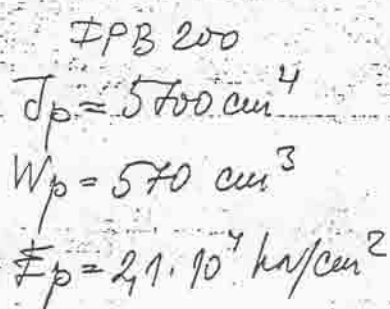 IPB 200
Jp = 5700 cm⁴
Wp = 570 cm³
Ep = 2,1·10⁴ kN/cm²